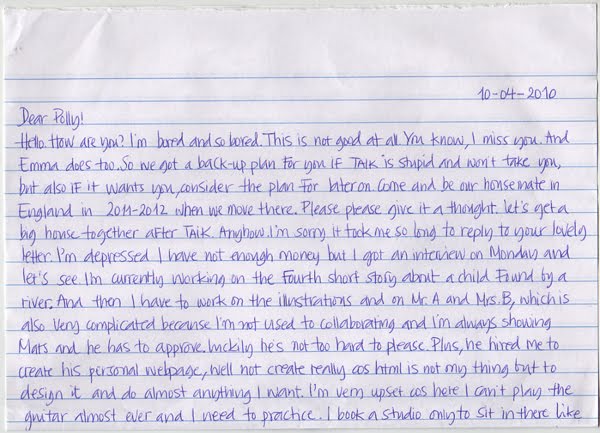 10-04-2010
Dear Polly!
Hello. How are you? I'm bored and so bored. This is not good at all. You know, I miss you. And
Emma does too. So we got a back-up plan for you IF TAIK is stupid and won't take you,
but also IF it wants you, consider the plan for later on. Come and be our housemate in
England in 2011-2012 when we move there. Please please give it a thought. Let's get a
big house together after TAIK. Anyhow. I'm sorry it took me so long to reply to your lovely
letter. I'm depressed I have not enough money but I got an interview on Monday and
let's see. I'm currently working on the fourth short story about a child found by a
river. And then I have to work on the illustrations and on Mr. A and Mrs. B, which is
also very complicated because I'm not used to collaborating and I'm always showing
Mats and he has to approve. Luckily he's not too hard to please. Plus, he hired me to
create his personal webpage, well not create really cos html is not my thing but to
design it and do almost anything I want. I'm very upset cos here I can't play the
guitar almost ever and I need to practice. I book a studio only to sit in there like